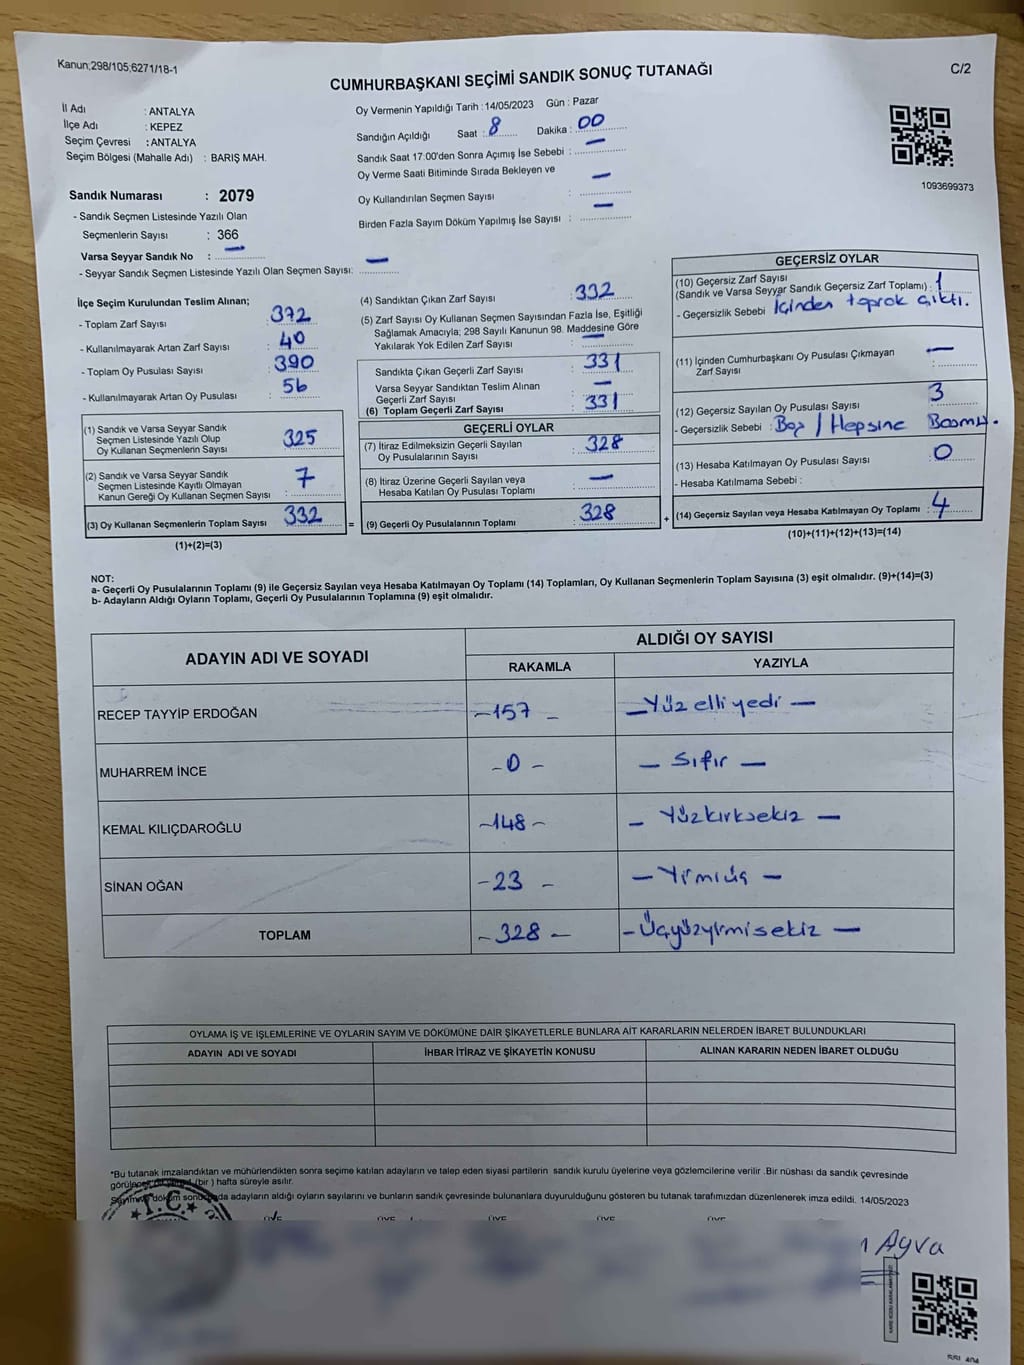 Kanun;298/105;6271/18-1
C/2
CUMHURBAŞKANI SEÇİMİ SANDIK SONUÇ TUTANAĞI
İl Adı : ANTALYA
İlçe Adı : KEPEZ
Seçim Çevresi : ANTALYA
Seçim Bölgesi (Mahalle Adı) : BARIŞ MAH.
Oy Vermenin Yapıldığı Tarih :14/05/2023 Gün : Pazar
Sandığın Açıldığı Saat : 8 Dakika : 00
Sandık Saat 17:00'den Sonra Açımış İse Sebebi : —
Oy Verme Saati Bitiminde Sırada Bekleyen ve
Oy Kullandırılan Seçmen Sayısı : —
Birden Fazla Sayım Döküm Yapılmış İse Sayısı : —
1093699373
Sandık Numarası : 2079
- Sandık Seçmen Listesinde Yazılı Olan
Seçmenlerin Sayısı : 366
Varsa Seyyar Sandık No : —
- Seyyar Sandık Seçmen Listesinde Yazılı Olan Seçmen Sayısı: —
İlçe Seçim Kurulundan Teslim Alınan;
- Toplam Zarf Sayısı : 372
- Kullanılmayarak Artan Zarf Sayısı : 40
- Toplam Oy Pusulası Sayısı : 390
- Kullanılmayarak Artan Oy Pusulası : 56
(1) Sandık ve Varsa Seyyar Sandık
Seçmen Listesinde Yazılı Olup
Oy Kullanan Seçmenlerin Sayısı : 325
(2) Sandık ve Varsa Seyyar Sandık
Seçmen Listesinde Kayıtlı Olmayan
Kanun Gereği Oy Kullanan Seçmen Sayısı : 7
(3) Oy Kullanan Seçmenlerin Toplam Sayısı : 332
(1)+(2)=(3)
(4) Sandıktan Çıkan Zarf Sayısı : 332
(5) Zarf Sayısı Oy Kullanan Seçmen Sayısından Fazla İse, Eşitliği
Sağlamak Amacıyla; 298 Sayılı Kanunun 98. Maddesine Göre
Yakılarak Yok Edilen Zarf Sayısı : —
Sandıkta Çıkan Geçerli Zarf Sayısı : 331
Varsa Seyyar Sandıktan Teslim Alınan
Geçerli Zarf Sayısı : —
(6) Toplam Geçerli Zarf Sayısı : 331
GEÇERLİ OYLAR
(7) İtiraz Edilmeksizin Geçerli Sayılan
Oy Pusulalarının Sayısı : 328
(8) İtiraz Üzerine Geçerli Sayılan veya
Hesaba Katılan Oy Pusulası Toplamı : —
= (9) Geçerli Oy Pusulalarının Toplamı : 328
GEÇERSİZ OYLAR
(10) Geçersiz Zarf Sayısı
(Sandık ve Varsa Seyyar Sandık Geçersiz Zarf Toplamı) : 1
- Geçersizlik Sebebi : İçinden toprak çıktı.
(11) İçinden Cumhurbaşkanı Oy Pusulası Çıkmayan
Zarf Sayısı : —
(12) Geçersiz Sayılan Oy Pusulası Sayısı : 3
- Geçersizlik Sebebi : Boş / Hepsine Basmış.
(13) Hesaba Katılmayan Oy Pusulası Sayısı : 0
- Hesaba Katılmama Sebebi :
+ (14) Geçersiz Sayılan veya Hesaba Katılmayan Oy Toplamı : 4
(10)+(11)+(12)+(13)=(14)
NOT:
a- Geçerli Oy Pusulalarının Toplamı (9) ile Geçersiz Sayılan veya Hesaba Katılmayan Oy Toplamı (14) Toplamları, Oy Kullanan Seçmenlerin Toplam Sayısına (3) eşit olmalıdır. (9)+(14)=(3)
b- Adayların Aldığı Oyların Toplamı, Geçerli Oy Pusulalarının Toplamına (9) eşit olmalıdır.
ADAYIN ADI VE SOYADI ALDIĞI OY SAYISI
RAKAMLA YAZIYLA
RECEP TAYYİP ERDOĞAN -157- — Yüz elli yedi —
MUHARREM İNCE -0- — Sıfır —
KEMAL KILIÇDAROĞLU -148- — Yüzkırksekiz —
SİNAN OĞAN -23- — Yirmiüç —
TOPLAM -328- - Üçyüzyirmisekiz —
OYLAMA İŞ VE İŞLEMLERİNE VE OYLARIN SAYIM VE DÖKÜMÜNE DAİR ŞİKAYETLERLE BUNLARA AİT KARARLARIN NELERDEN İBARET BULUNDUKLARI
ADAYIN ADI VE SOYADI İHBAR İTİRAZ VE ŞİKAYETİN KONUSU ALINAN KARARIN NEDEN İBARET OLDUĞU
*Bu tutanak imzalandıktan ve mühürlendikten sonra seçime katılan adayların ve talep eden siyasi partilerin sandık kurulu üyelerine veya gözlemcilerine verilir .Bir nüshası da sandık çevresinde
(bir ) hafta süreyle asılır.
adayların aldığı oyların sayılarını ve bunların sandık çevresinde bulunanlara duyurulduğunu gösteren bu tutanak tarafımızdan düzenlenerek imza edildi. 14/05/2023
T.C.
ÜYE ÜYE ÜYE ÜYE ÜYE
Ayva